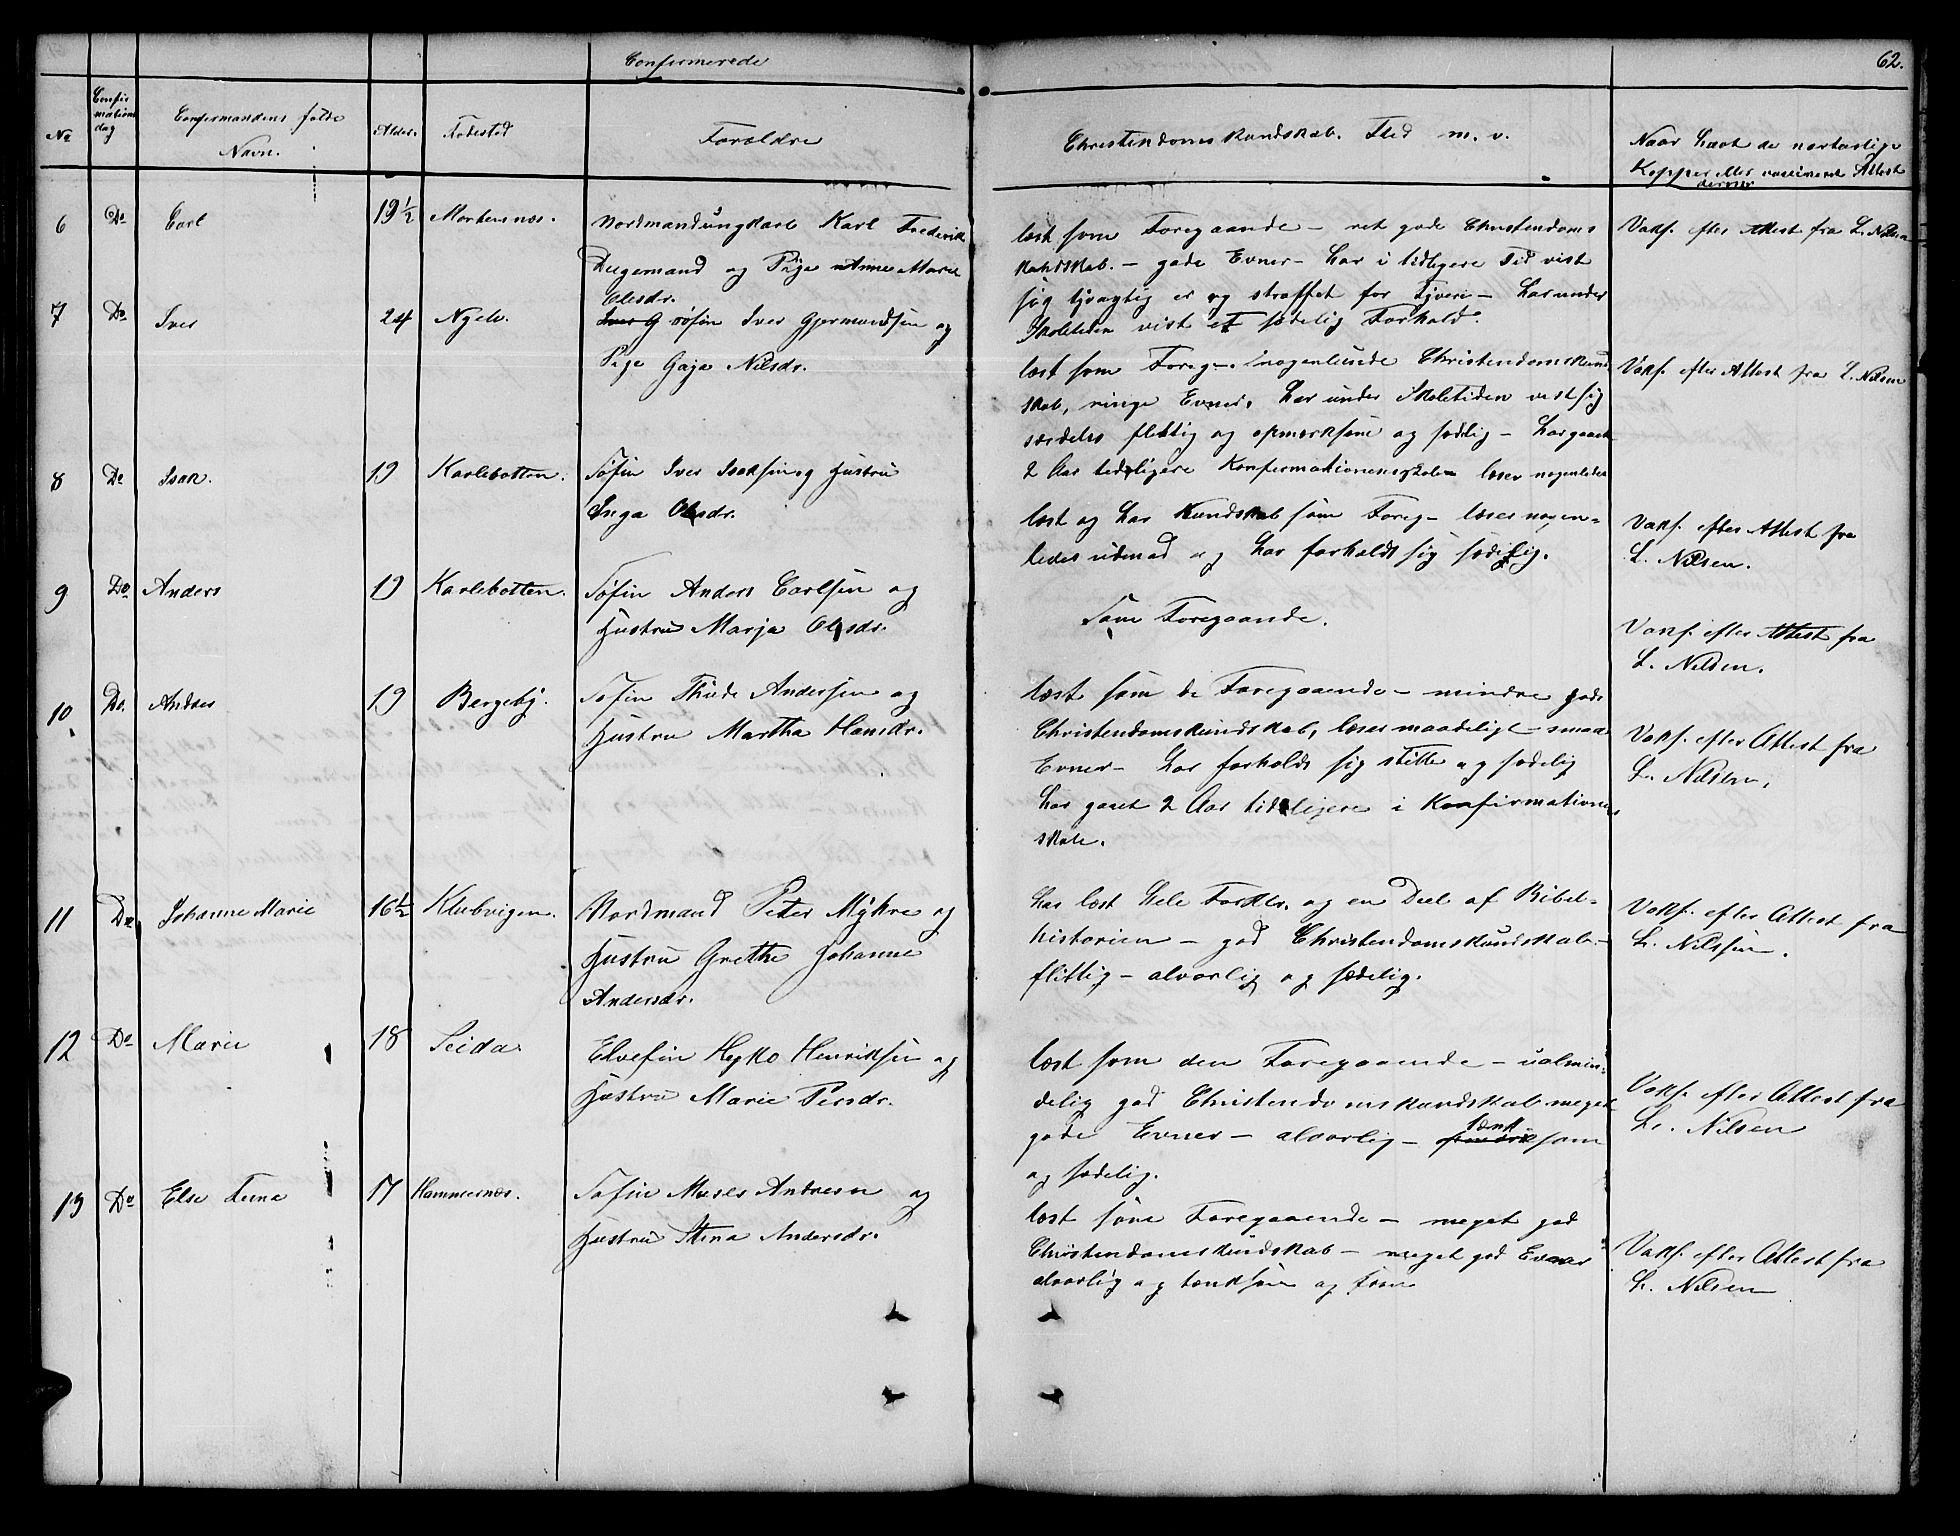 Confirmerede
62.
No
Confirmations dag
Confirmandens fulde Navn.
Alder.
Fødested
Forældre
Christendomskundskab. Flid m. v.
Naar havt de naturlige
Kopper eller vaccineret Attest
derover
6 Do Carl 19½ Mortensnæs. Nordmand ungkarl Karl Frederik
Dugemand og Pige Anne Marie
Olesdr.
læst som Foregaaende – ret gode Christendoms
kundskab. – gode Evner – har i tidligere Tid vist
sig tyvagtig er og straffet for Tyveri – har under
Skoletiden vist et sædelig Forhold.
Vakc. efter Attest fra L. Nilsen
7 Do Iver 24 Nyelv. søfin Iver Gjermundsen og
Pige Gaja Nilsdr.
læst som Foreg – nogenlunde Christendomskund
skab, ringe Evner, har under Skoletiden vist sig
særdeles flittig og opmærksom og sædelig – har gaaet
2 Aar tidligere Konfirmationsskole – læser nogenledes
Vakc. efter Attest fra L. Nilsen
8 Do Isak. 19 Karlebotten. Søfin Iver Isaksen og Hustru
Inga Olesdr.
læst og har Kundskab som Foreg – læser nogen-
ledes udenad og har forholdt sig sædelig.
Vakc. efter Attest fra
L. Nilsen.
9 Do Anders 19 Karlebotten. Søfin Anders Carlsen og
Hustru Marja Olesdr.
Som Foregaaende.
Vakc. efter Attest fra
L. Nilsen.
10 Do. Andres 19 Bergeby. Søfin Thude Andersen og
Hustru Martha Hansdr.
læst som de Foregaaende – mindre gode
Christendomskundskab, læser maadeligt – smaa
Evner – har forholdt sig stille og sædelig
har gaaet 2 Aar tidligere i Konfirmations
skole.
Vakc. efter Attest fra
L. Nilsen.
11 Do Johanne Marie 16½ Klubvigen. Nordmand Peter Mykre og
Hustru Grethe Johanne
Andersdr.
har læst hele Forklr. og en Deel af Bibel-
historien – god Christendomskundskab –
flittig – alvorlig og sædelig.
Vakc. efter Attest fra
L. Nilsen.
12 Do Marie 18 Seida Elvefin Hysko Henriksen og
Hustru Marie Persdr.
læst som den Foregaaende – ualmin-
delig god Christendomskundskab meget
gode Evner – alvorlig – tænksom
og sædelig.
Vakc. efter Attest fra
L. Nilsen
13 Do Else Lena 17 Hammernæs. Søfin Moses Andresen og
Hustru Stina Andersdr.
læst som Foregaaende – meget god
Christendomskundskab – meget god Evner
alvorlig og tænksom og from
Vakc. efter Attest fra
L. Nilsen